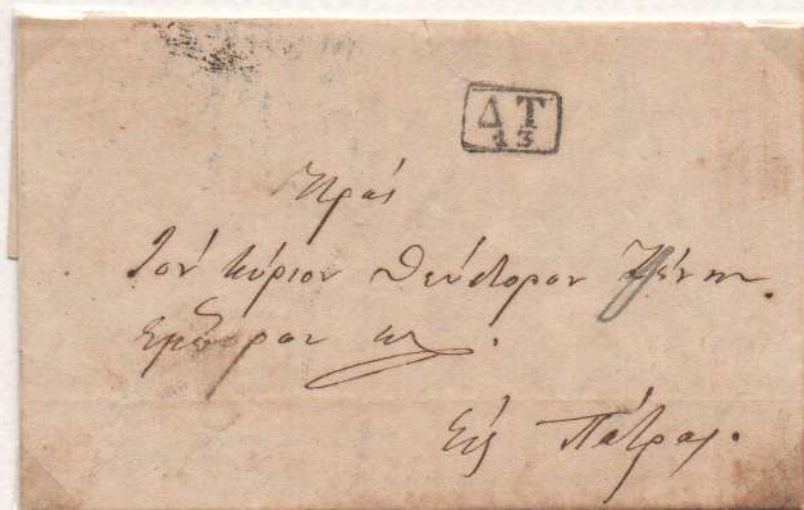 ΔΤ
13
Πρὸς
Τὸν Κύριον Θεόδωρον
Ἔμπορον κλ.
Εἰς Πάτρας.